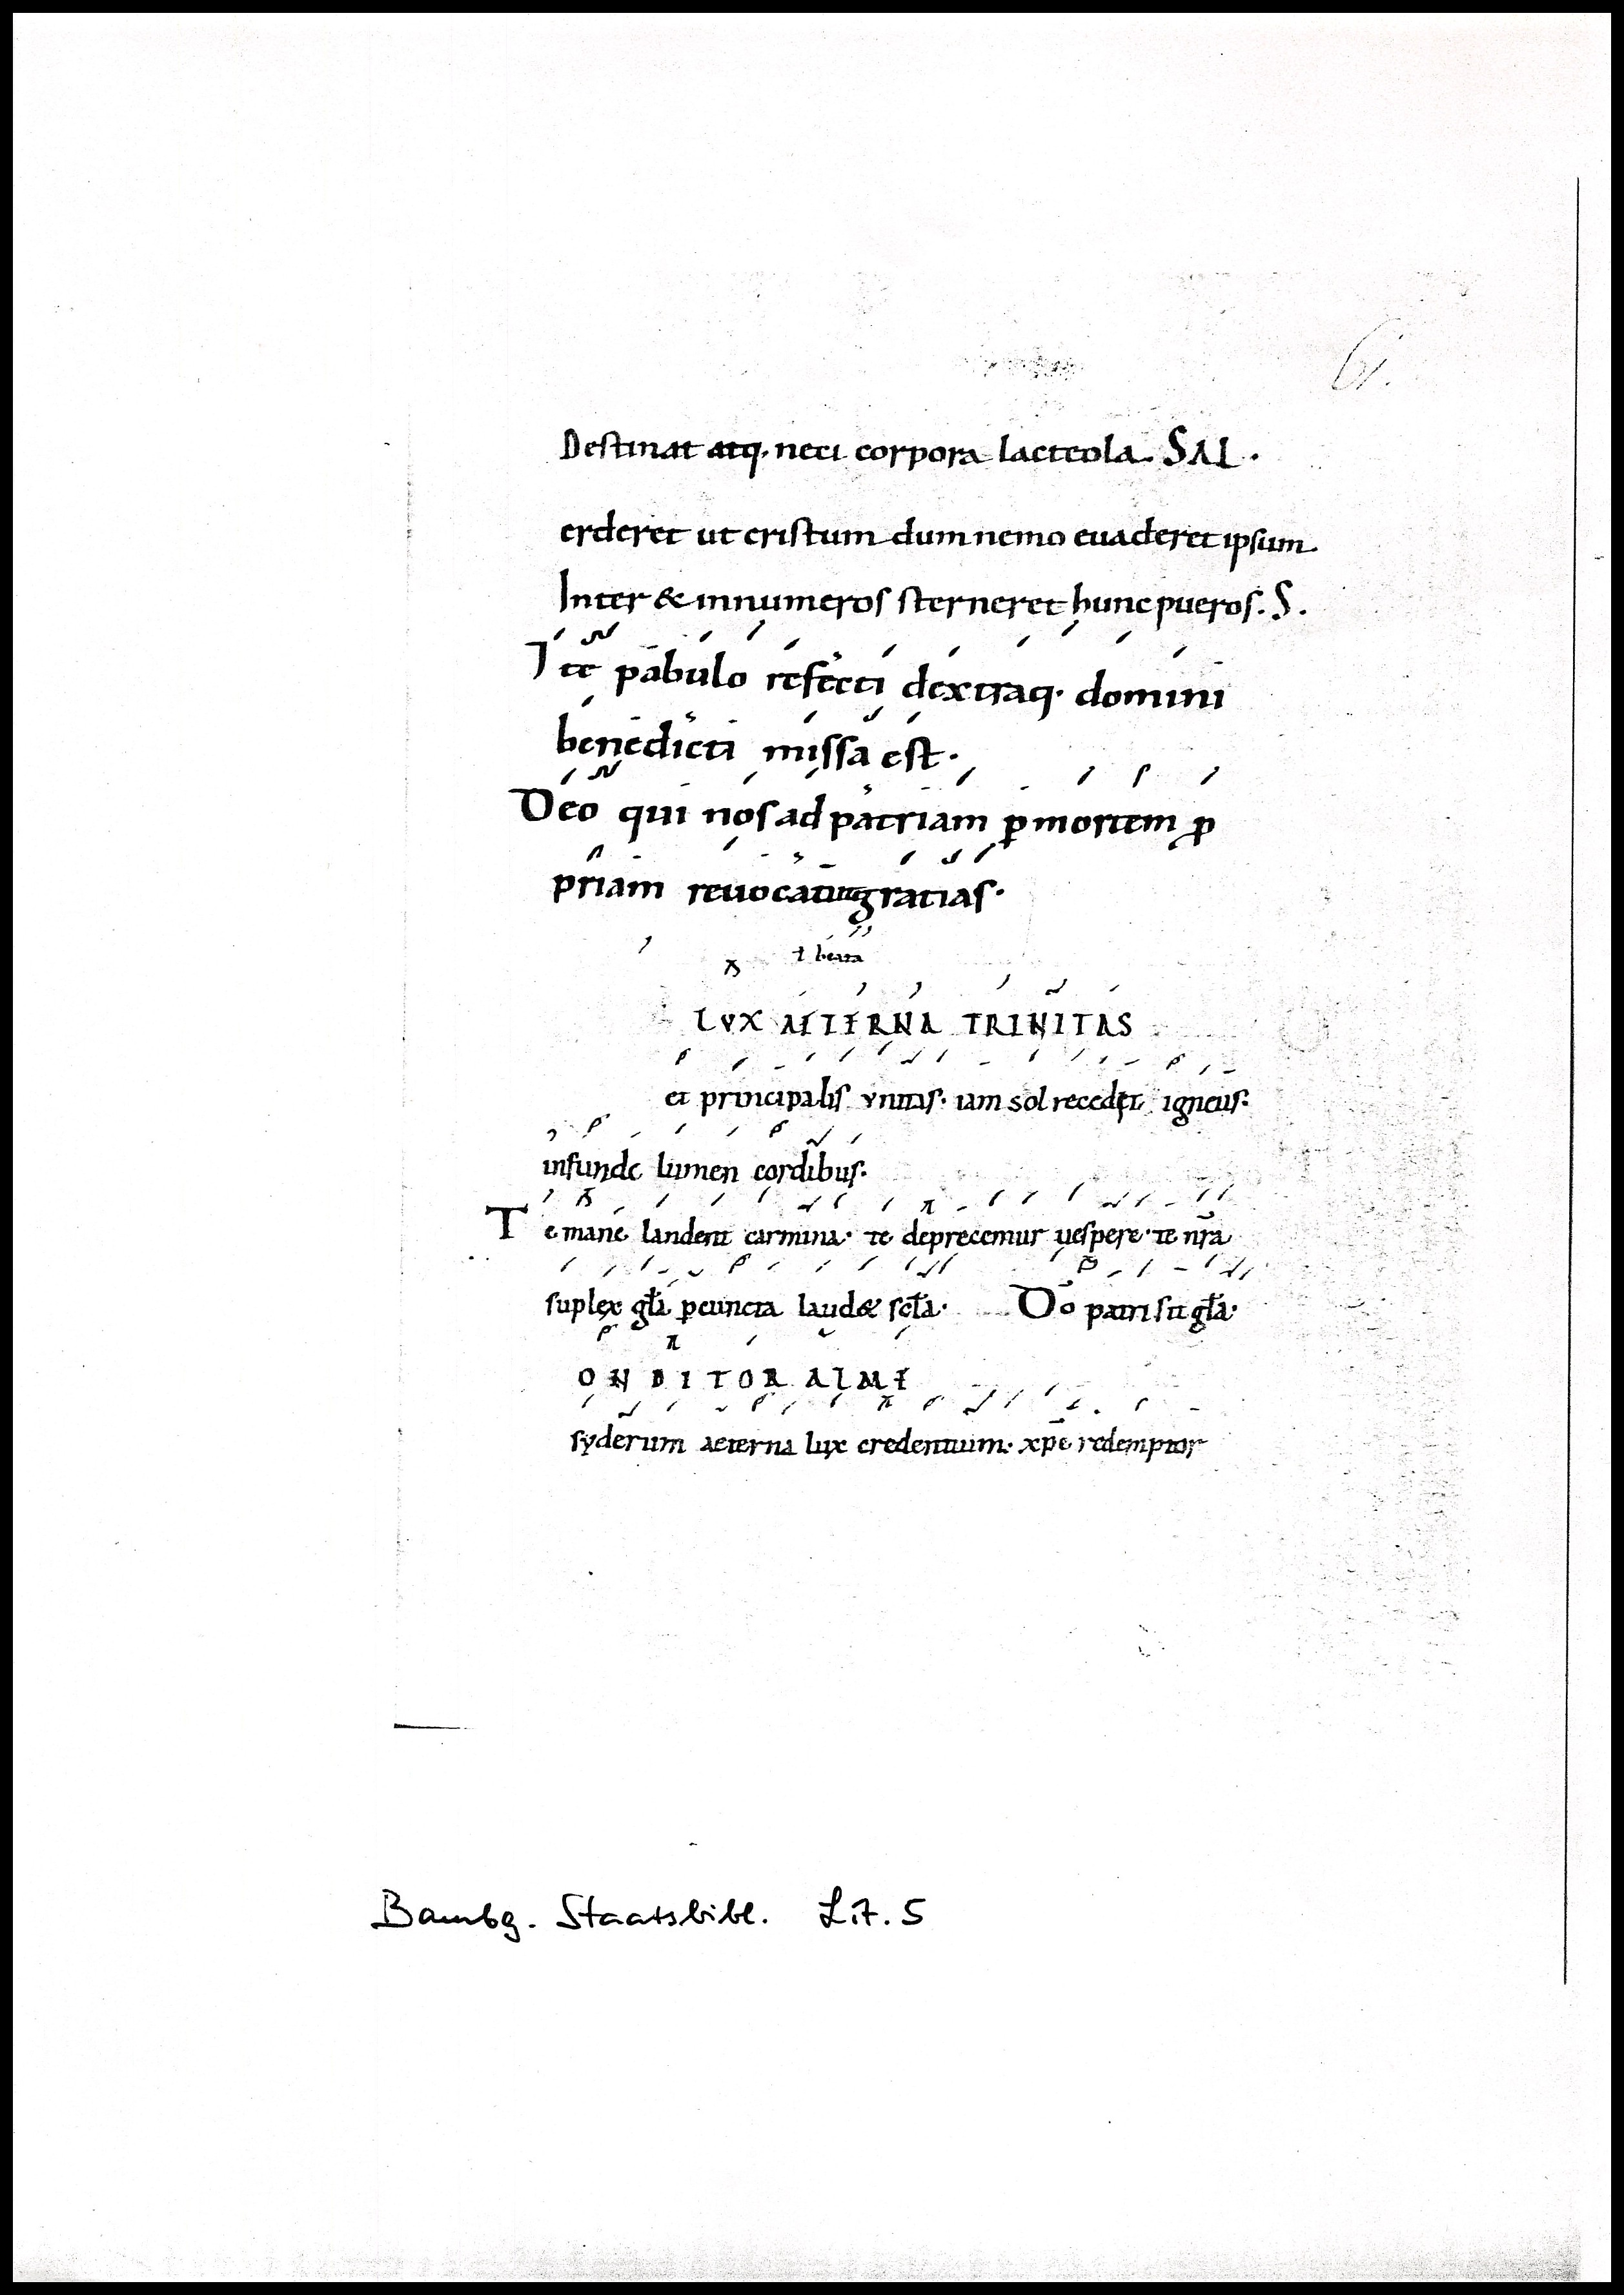 61.
Destinat atq. neci corpora lacteola. SAL.
erderet ut cristum dum nemo euaderet ipsum.
Inter & innumeros sterneret hunc pueros. S.
Ite pabulo refecti dextraq. domini
benedicti missa est.
Deo qui nos ad patriam ꝑ mortem ꝓ
priam reuocauit gratias.
ł beata
LVX AETERNA TRINITAS
et principalis vnitas. iam sol recedet igneus.
infunde lumen cordibus.
Te mane laudent carmina. te deprecemur uespere. te nr̄a
suplex gl̄a ꝑ cuncta laud& scl̄a. Dō patri sit gl̄a.
ONDITOR ALME
syderum aeterna lux credentium. xp̄e redemptor
Bambg. Staatsbibl. Lit. 5